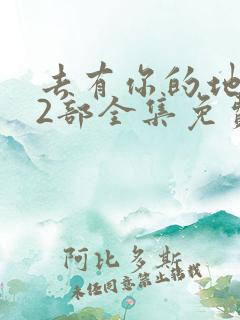 去有你的地
2部全集免费
阿比多斯
未经同意禁止转载